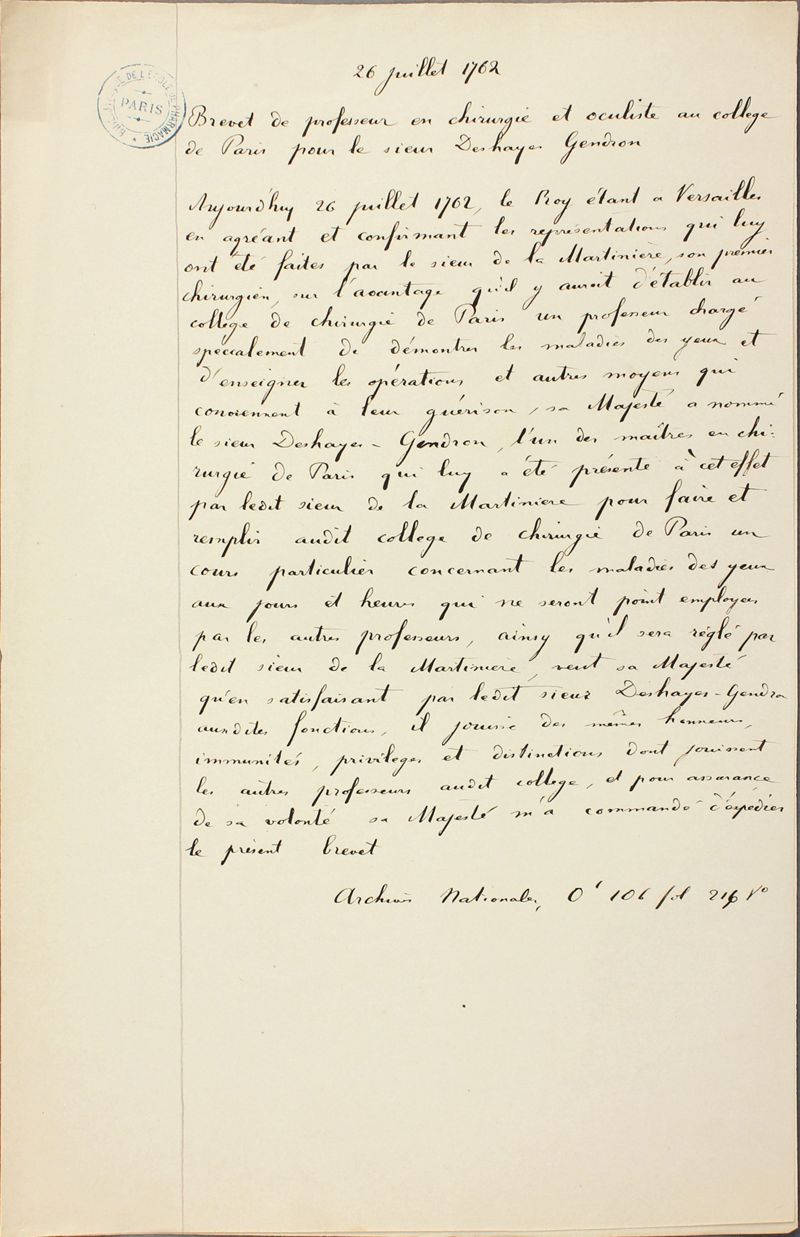 26 juillet 1762
BIBLIOTHÈQUE DE L'ÉCOLE DE PHARMACIE
PARIS
Brevet de professeur en chirurgie et oculiste au college
de Paris pour le sieur Deshayes Gendron
Aujourd'huy 26 juillet 1762, le Roy étant a Versailles
en agréant et confirmant les représentations qui luy
ont été faites par le sieur de la Martinière, son premier
chirurgien, sur l'avantage qu'il y auroit d'établir au
collège de chirurgie de Paris un professeur chargé
specialement de démontrer les maladies des yeux et
d'enseigner les opérations et autres moyens qui
conviennent à leur guérison, sa Majesté a nommé
le sieur Deshayes-Gendron, l'un des maîtres en chi-
rurgie de Paris qui luy a été présenté à cet effet
par ledit sieur de la Martiniere pour faire et
remplir audit college de chirurgie de Paris un
cours particulier concernant les maladies des yeux
aux jours et heures qui ne seront point employés
par les autres professeurs, ainsy qu'il sera réglé par
ledit sieur de la Martiniere, veut sa Majesté
qu'en satisfaisant par ledit sieur Deshayes-Gendron
auxdites fonctions, il jouisse des mêmes honneurs,
immunités, privileges et distinctions dont jouissent
les autres professeurs audit college, et pour assurance
de sa volonté sa Majesté m'a commandé d'expédier
le présent brevet
Archives Nationales, O¹ 106 fol 216 v°